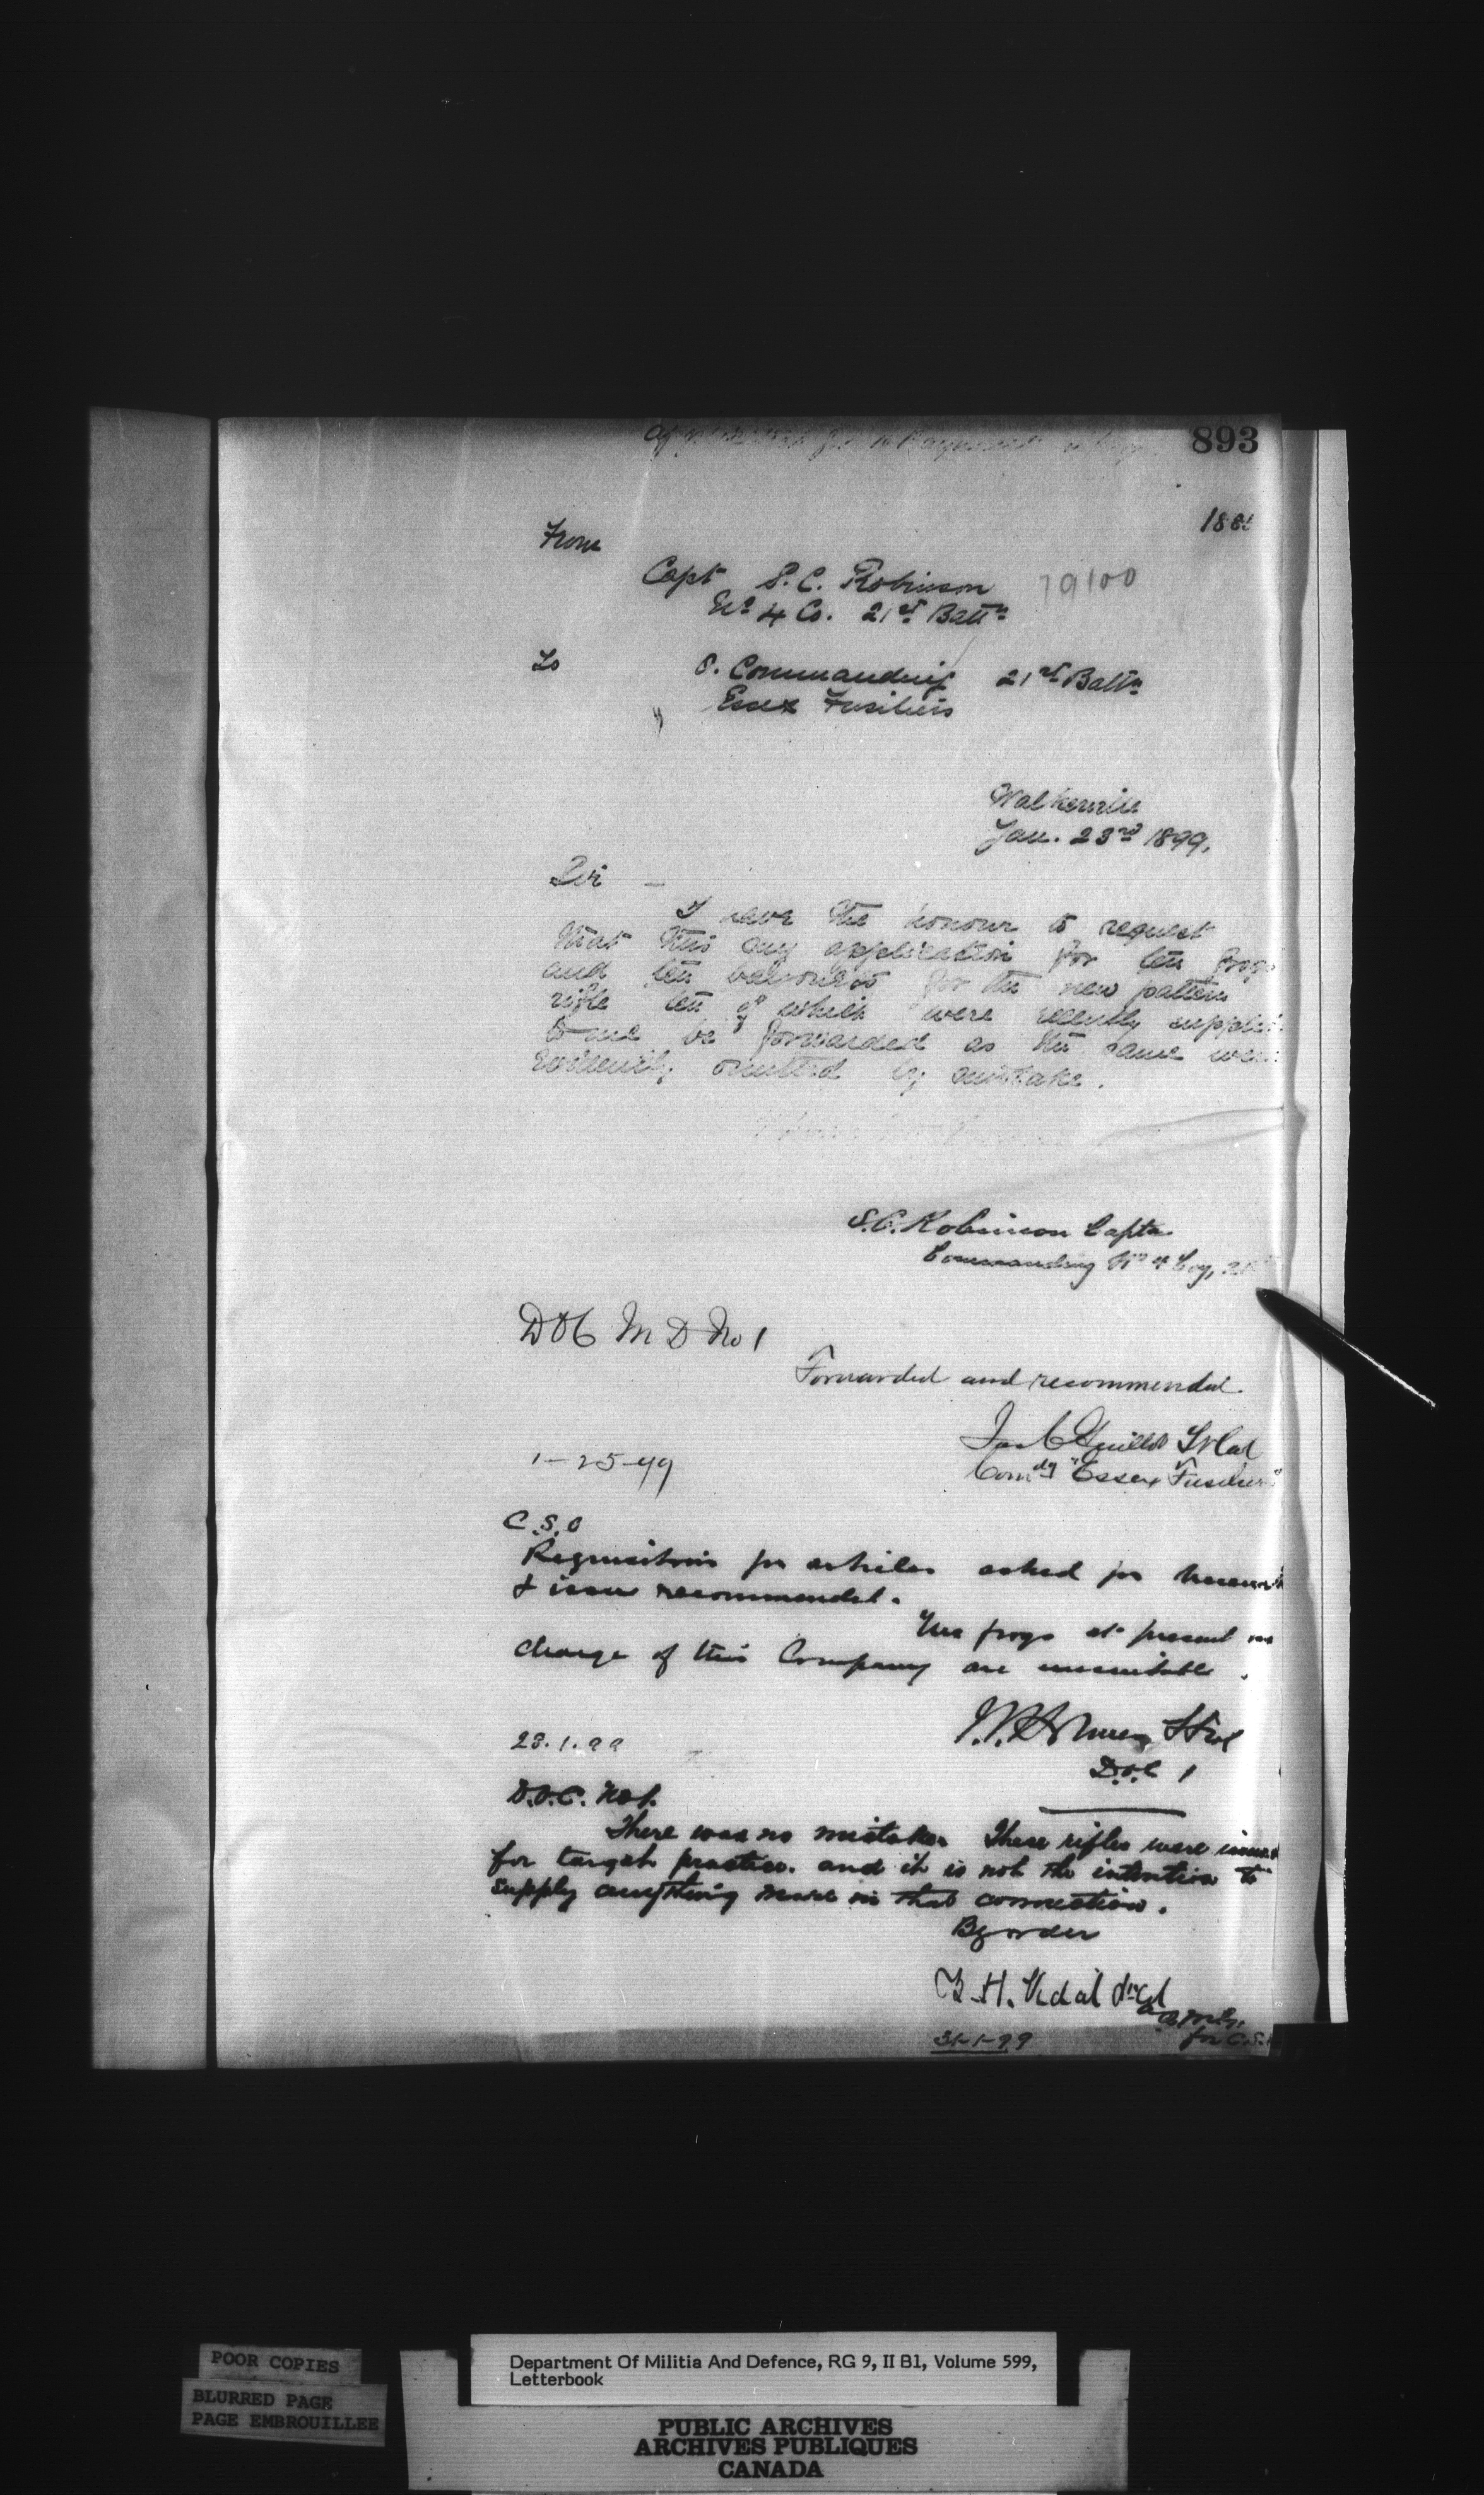 893
188
From
Capt S. C. Robinson 79100
No 4 Co. 21st Battn
To
O. Commanding 21st Battn
Essex Fusiliers
Walkerville
Jan. 23rd 1899.
Sir —
I have the honour to request
that this my application for ten frogs
and ten bayonets for the new pattern
rifle ten of which were recently supplied
to me be forwarded as the same were
evidently omitted by mistake.
S. C. Robinson Captn
Commanding No 4 Coy, 21
D O C M D No 1
Forwarded and recommended.
Jas C Guillot Lt Col
Comdg "Essex Fusiliers"
1-25-99
C.S.O
Requisition for articles asked for herewith
& issue recommended.
The frogs at present on
charge of this Company are unsuitable.
28.1.99
D.O.C 1
D.O.C. No 1.
There was no mistake. These rifles were issued
for target practice. and it is not the intention to
supply anything more in that connection.
By order
B. H. Vidal Lt Col
for C.S.O
31-1-99
POOR COPIES
BLURRED PAGE
PAGE EMBROUILLEE
Department Of Militia And Defence, RG 9, II B1, Volume 599,
Letterbook
PUBLIC ARCHIVES
ARCHIVES PUBLIQUES
CANADA